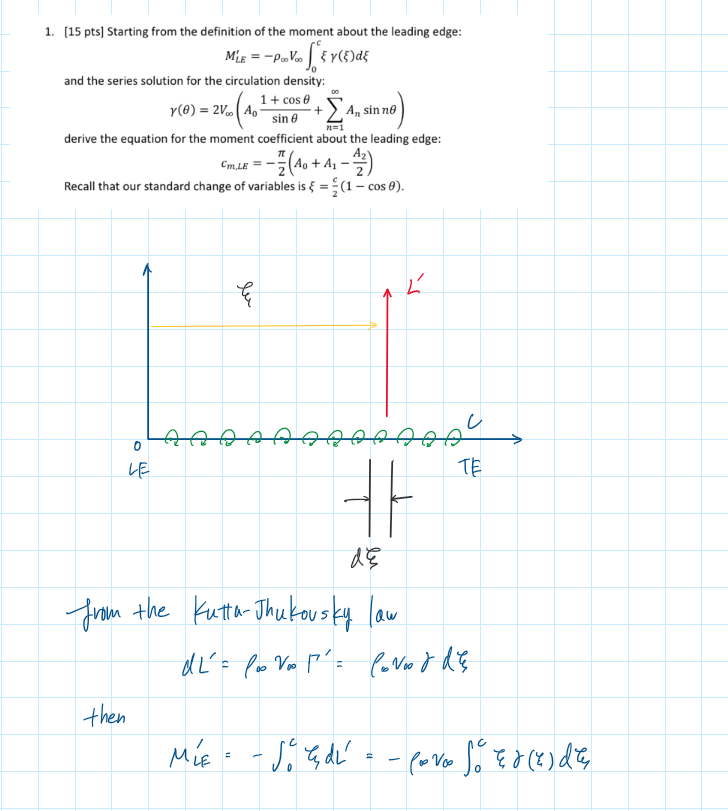 1. [15 pts] Starting from the definition of the moment about the leading edge:
M′LE = −ρ∞V∞ ∫₀ᶜ ξ γ(ξ)dξ
and the series solution for the circulation density:
γ(θ) = 2V∞ (A₀ (1 + cos θ)/(sin θ) + ∑ₙ₌₁^∞ Aₙ sin nθ)
derive the equation for the moment coefficient about the leading edge:
cm,LE = −π/2 (A₀ + A₁ − A₂/2)
Recall that our standard change of variables is ξ = c/2 (1 − cos θ).
ξ
L′
0
c
LE
TE
dξ
from the Kutta-Jhukovsky law
dL′ = ρ∞ V∞ Γ′ = ρ∞V∞ γ dξ
then
M′LE = − ∫₀ᶜ ξ dL′ = − ρ∞V∞ ∫₀ᶜ ξ γ(ξ) dξ